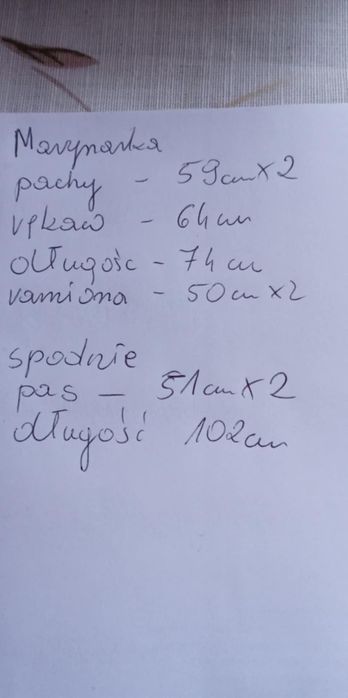 Marynarka
pachy - 59cm x 2
rękaw - 64cm
długośc - 74cm
ramiona - 50cm x 2
spodnie
pas - 51cm x 2
długość 102cm